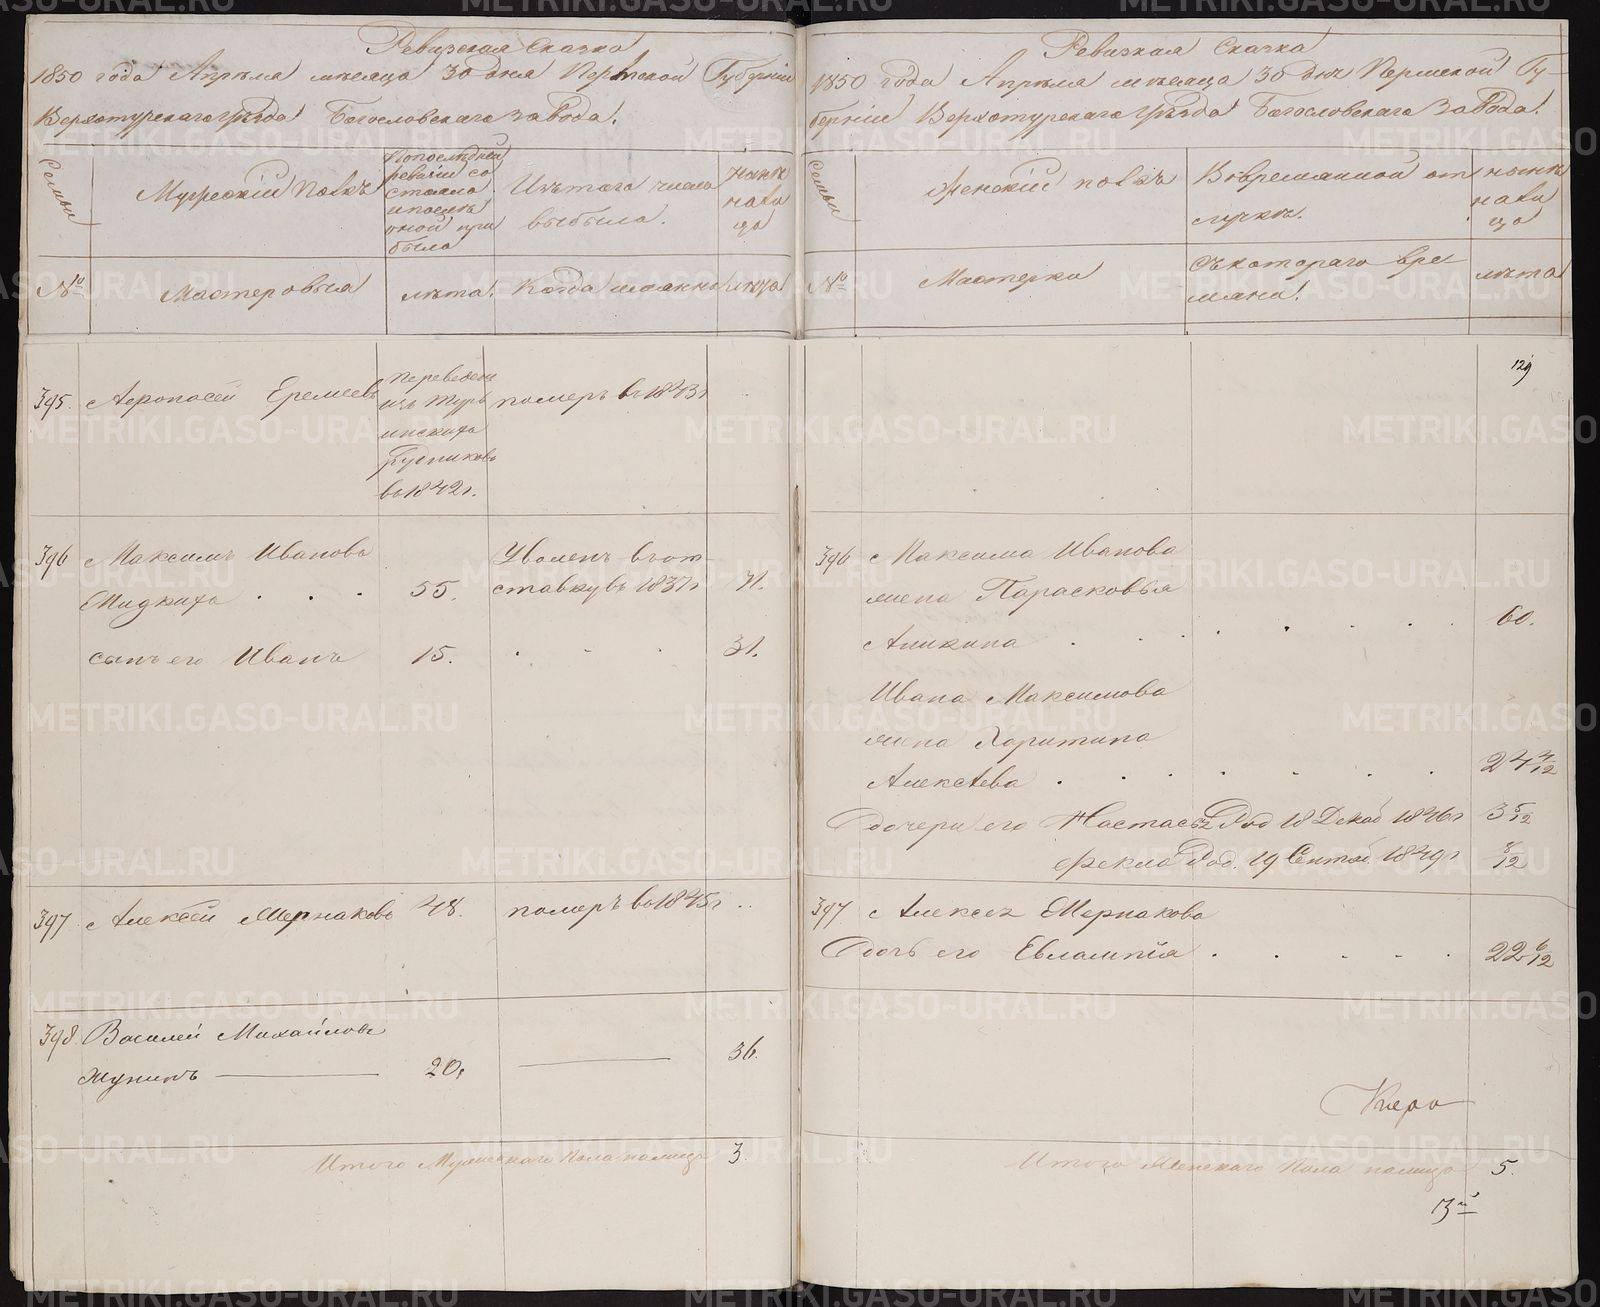 Ревизская Сказка
1850 года Апреля месяца 30 дня Пермской Губернiи
Верхотурскаго Уезда Богословскаго завода.
Семьи
Мужескiй полъ
По последней
ревизiи со
стояло
и после
оной при
было
Изъ того числа
выбыло.
Ныне
на ли
цо
№
Мастеровыя
лета.
Когда именно
лета
395.
Аѳонасей Еремеевъ
Переведенъ
изъ Турь
инскихъ
Рудниковъ
въ 1842 г.
померъ въ 1843 г
396
Максимъ Ивановъ
55.
Уволенъ въ от
ставку въ 1837 г
71.
сынъ его Иванъ
15.
31.
397
Алексей Мернаковъ
48.
померъ въ 1845 г
398
Василей Михайловъ
20.
36.
Итого Мужескаго пола налицо
3.
Ревизкая Сказка
1850 года Апреля месяца 30 дня Пермской Гу-
бернiи Верхотурскаго Уезда Богословскаго завода.
Семьи
Женскiй полъ
Во временной от
лучке.
ныне
на ли
цо
№
Мастерки
Съ котораго вре
мяни.
лета
129
396
Максима Иванова
жена Парасковья
Аникина
60.
Ивана Максимова
жена Харитина
Алексеева
24 4/12
Дочери его Настасья Род 18 Декаб 1846 г
3 5/12
Фекла Род. 19 Сентяб 1849 г
8/12
397
Алексея Мернакова
Дочь его Евлампiя
22 6/12
Итого Женскаго Пола налицо
5.
METRIKI.GASO-URAL.RU